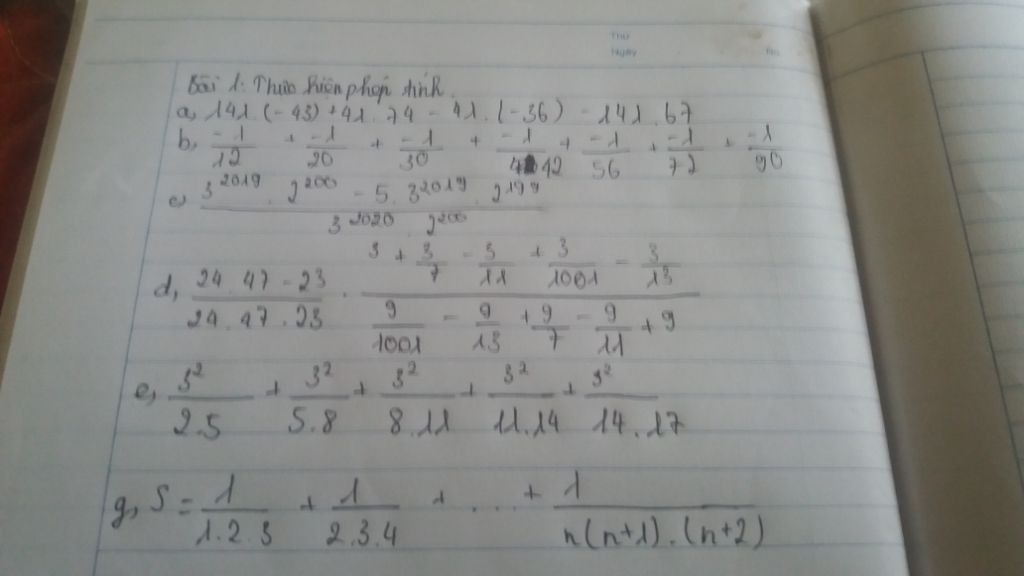 Thứ
Ngày
No
Bài 1: Thực hiện phép tính.
a, 141.(-43) + 41.74 - 41.(-36) - 141.67
b, -1/12 + -1/20 + -1/30 + -1/42 + -1/56 + -1/72 + -1/90
c, (3^2019 . 2^200 - 5.3^2019 . 2^199) / (3^2020 . 2^200)
d, (24.47 - 23) / (24.47.23) . (3 + 3/7 - 3/11 + 3/1001 - 3/13) / (9/1001 - 9/13 + 9/7 - 9/11 + 9)
e, 3^2/2.5 + 3^2/5.8 + 3^2/8.11 + 3^2/11.14 + 3^2/14.17
g, S = 1/1.2.3 + 1/2.3.4 + ... + 1/n(n+1).(n+2)